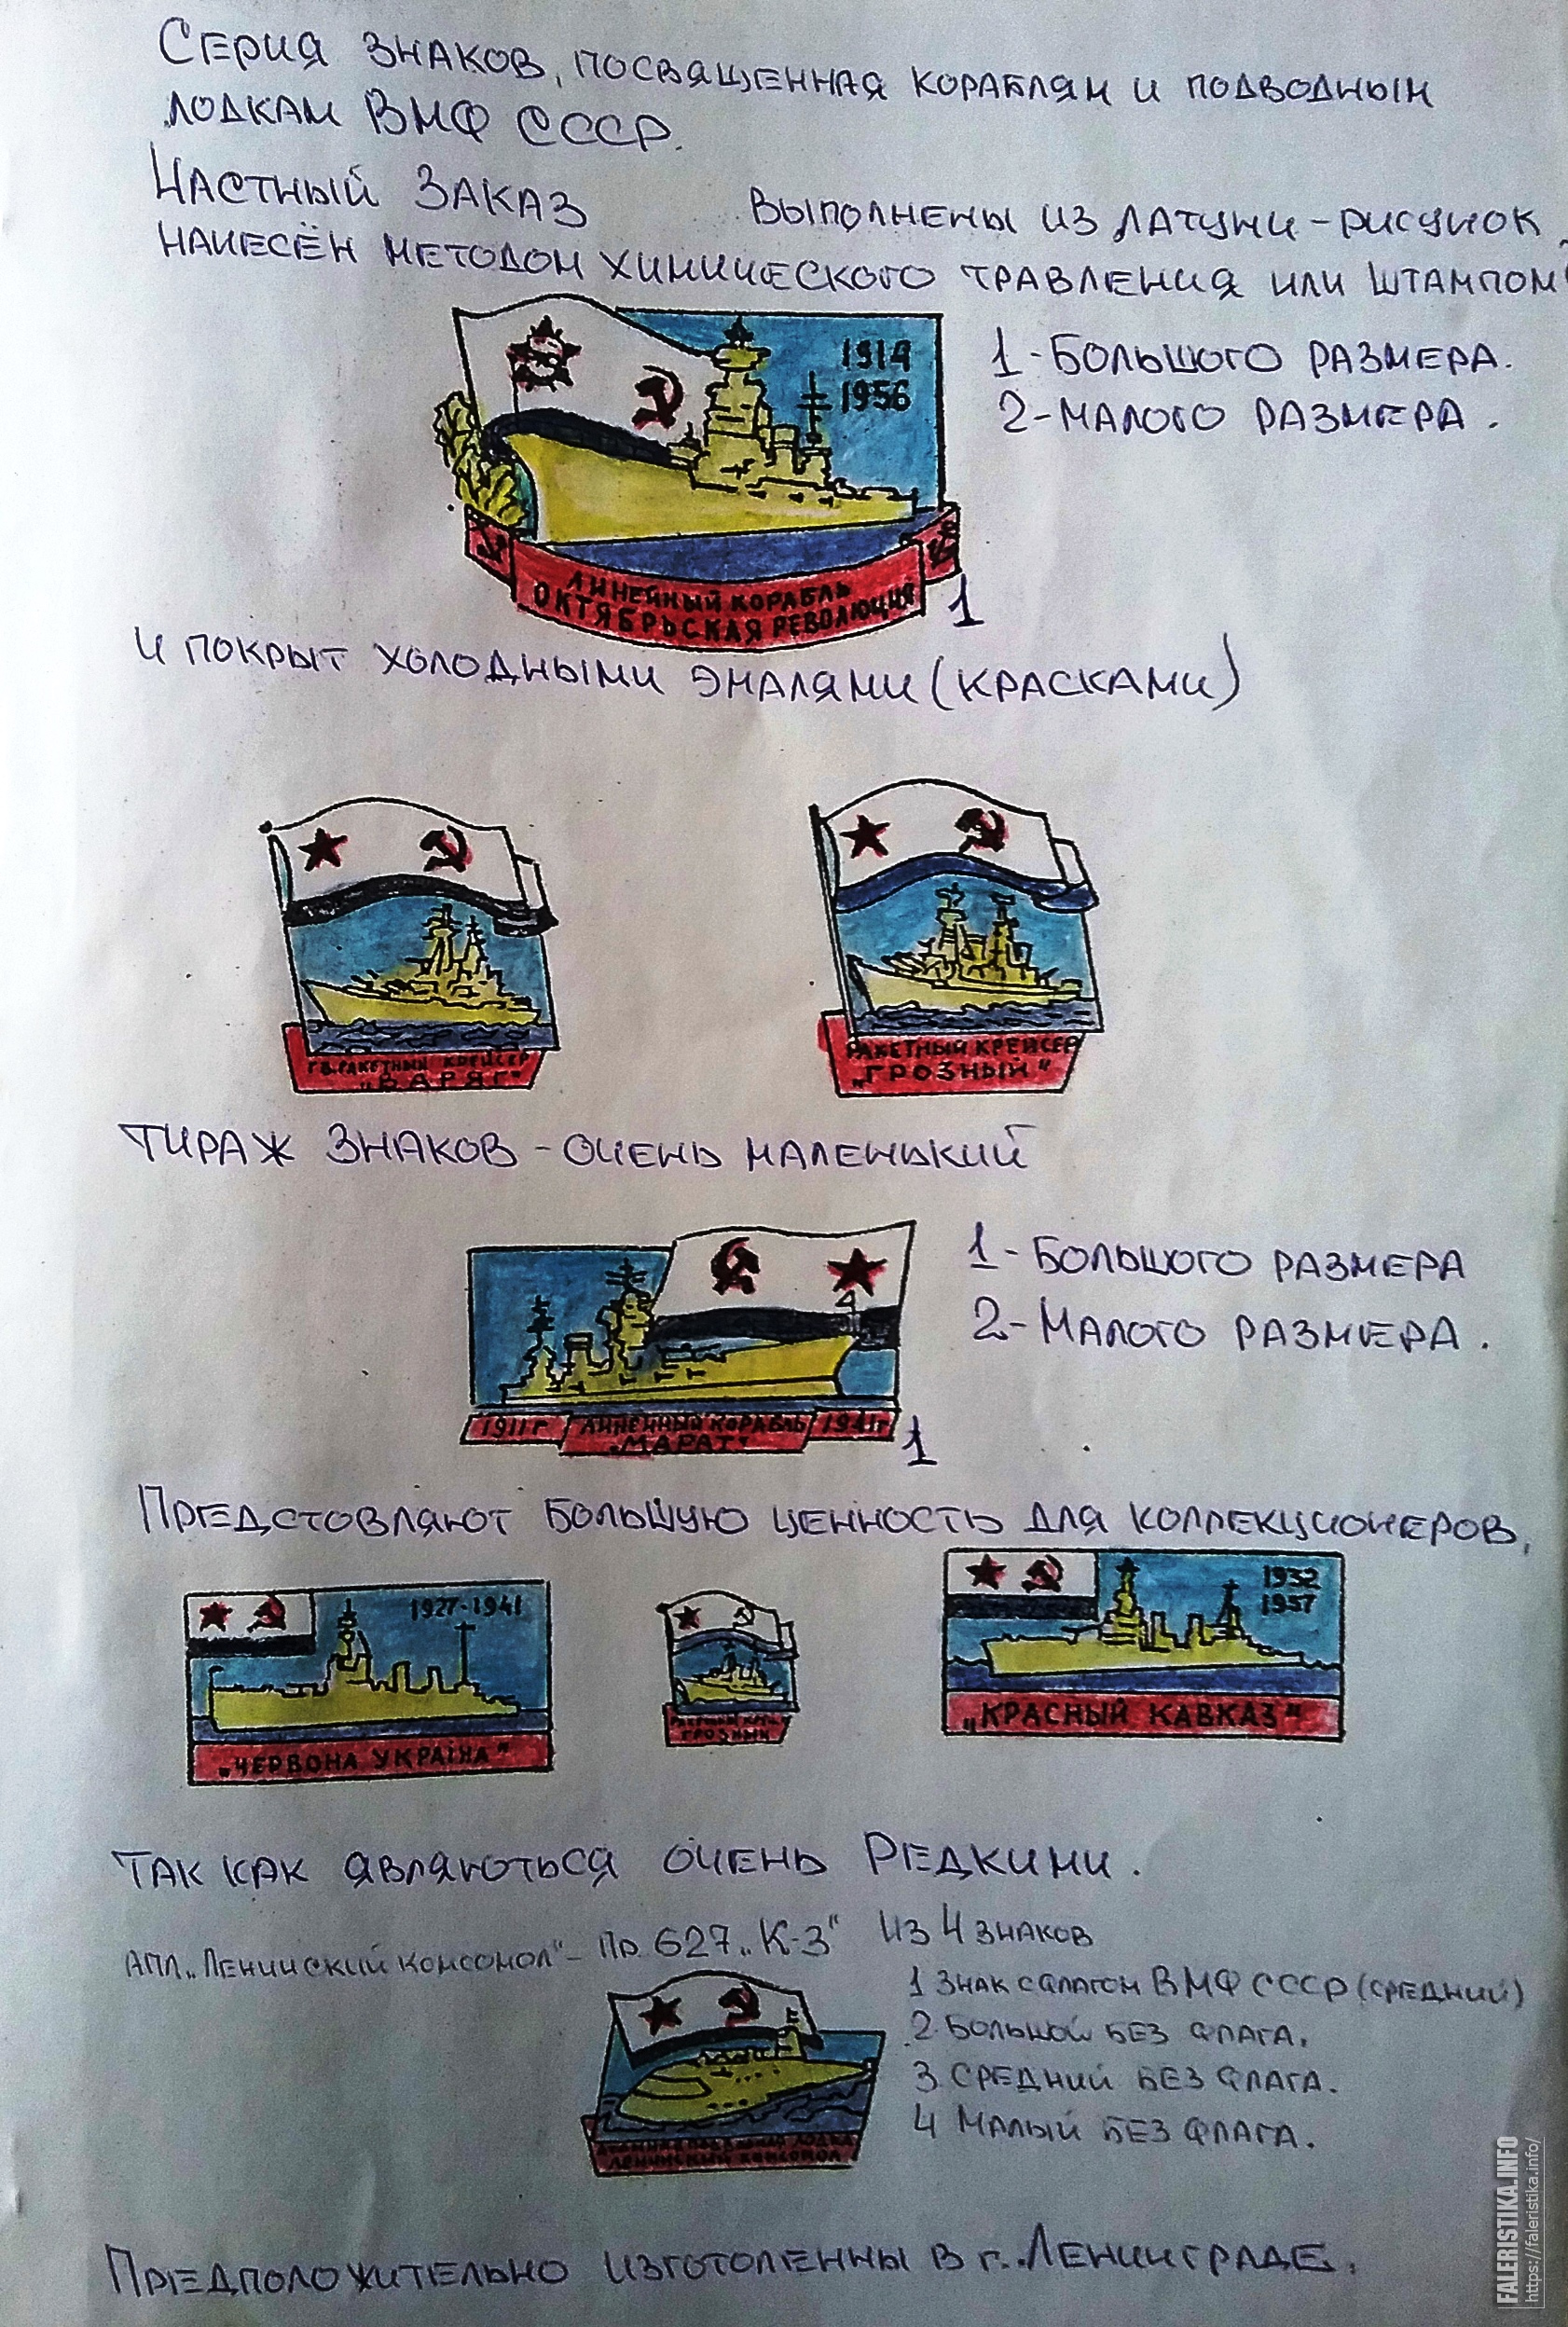 Серия знаков, посвященная кораблям и подводным
лодкам ВМФ СССР.
Частный заказ Выполнены из латуни - рисунок
нанесён методом химического травления или штампом
1 - Большого размера.
2 - Малого размера.
1914
1956
ЛИНЕЙНЫЙ КОРАБЛЬ
ОКТЯБРЬСКАЯ РЕВОЛЮЦИЯ
1
и покрыт холодными эмалями (красками)
ГВ. РАКЕТНЫЙ КРЕЙСЕР
„ВАРЯГ"
РАКЕТНЫЙ КРЕЙСЕР
„ГРОЗНЫЙ"
Тираж знаков - очень маленький
1 - Большого размера
2 - Малого размера.
1911г ЛИНЕЙНЫЙ КОРАБЛЬ 1941г
„МАРАТ"
1
Предстовляют большую ценность для коллекционеров,
1927-1941
„ЧЕРВОНА УКРАЇНА"
РАКЕТНЫЙ КРЕЙ
ГРОЗНЫЙ
1932
1957
„КРАСНЫЙ КАВКАЗ"
Так как являються очень редкими.
АПЛ „Ленинский комсомол" - Пр. 627 „К-3" из 4 знаков
1 Знак с флагом ВМФ СССР (средний)
2. Большой без флага.
3 Средний без флага.
4 Малый без флага.
АТОМНАЯ ПОДВОДНАЯ ЛОДКА
ЛЕНИНСКИЙ КОМСОМОЛ
Предположительно изготоленны в г. Ленинграде.
FALERISTIKA.INFO
https://faleristika.info/